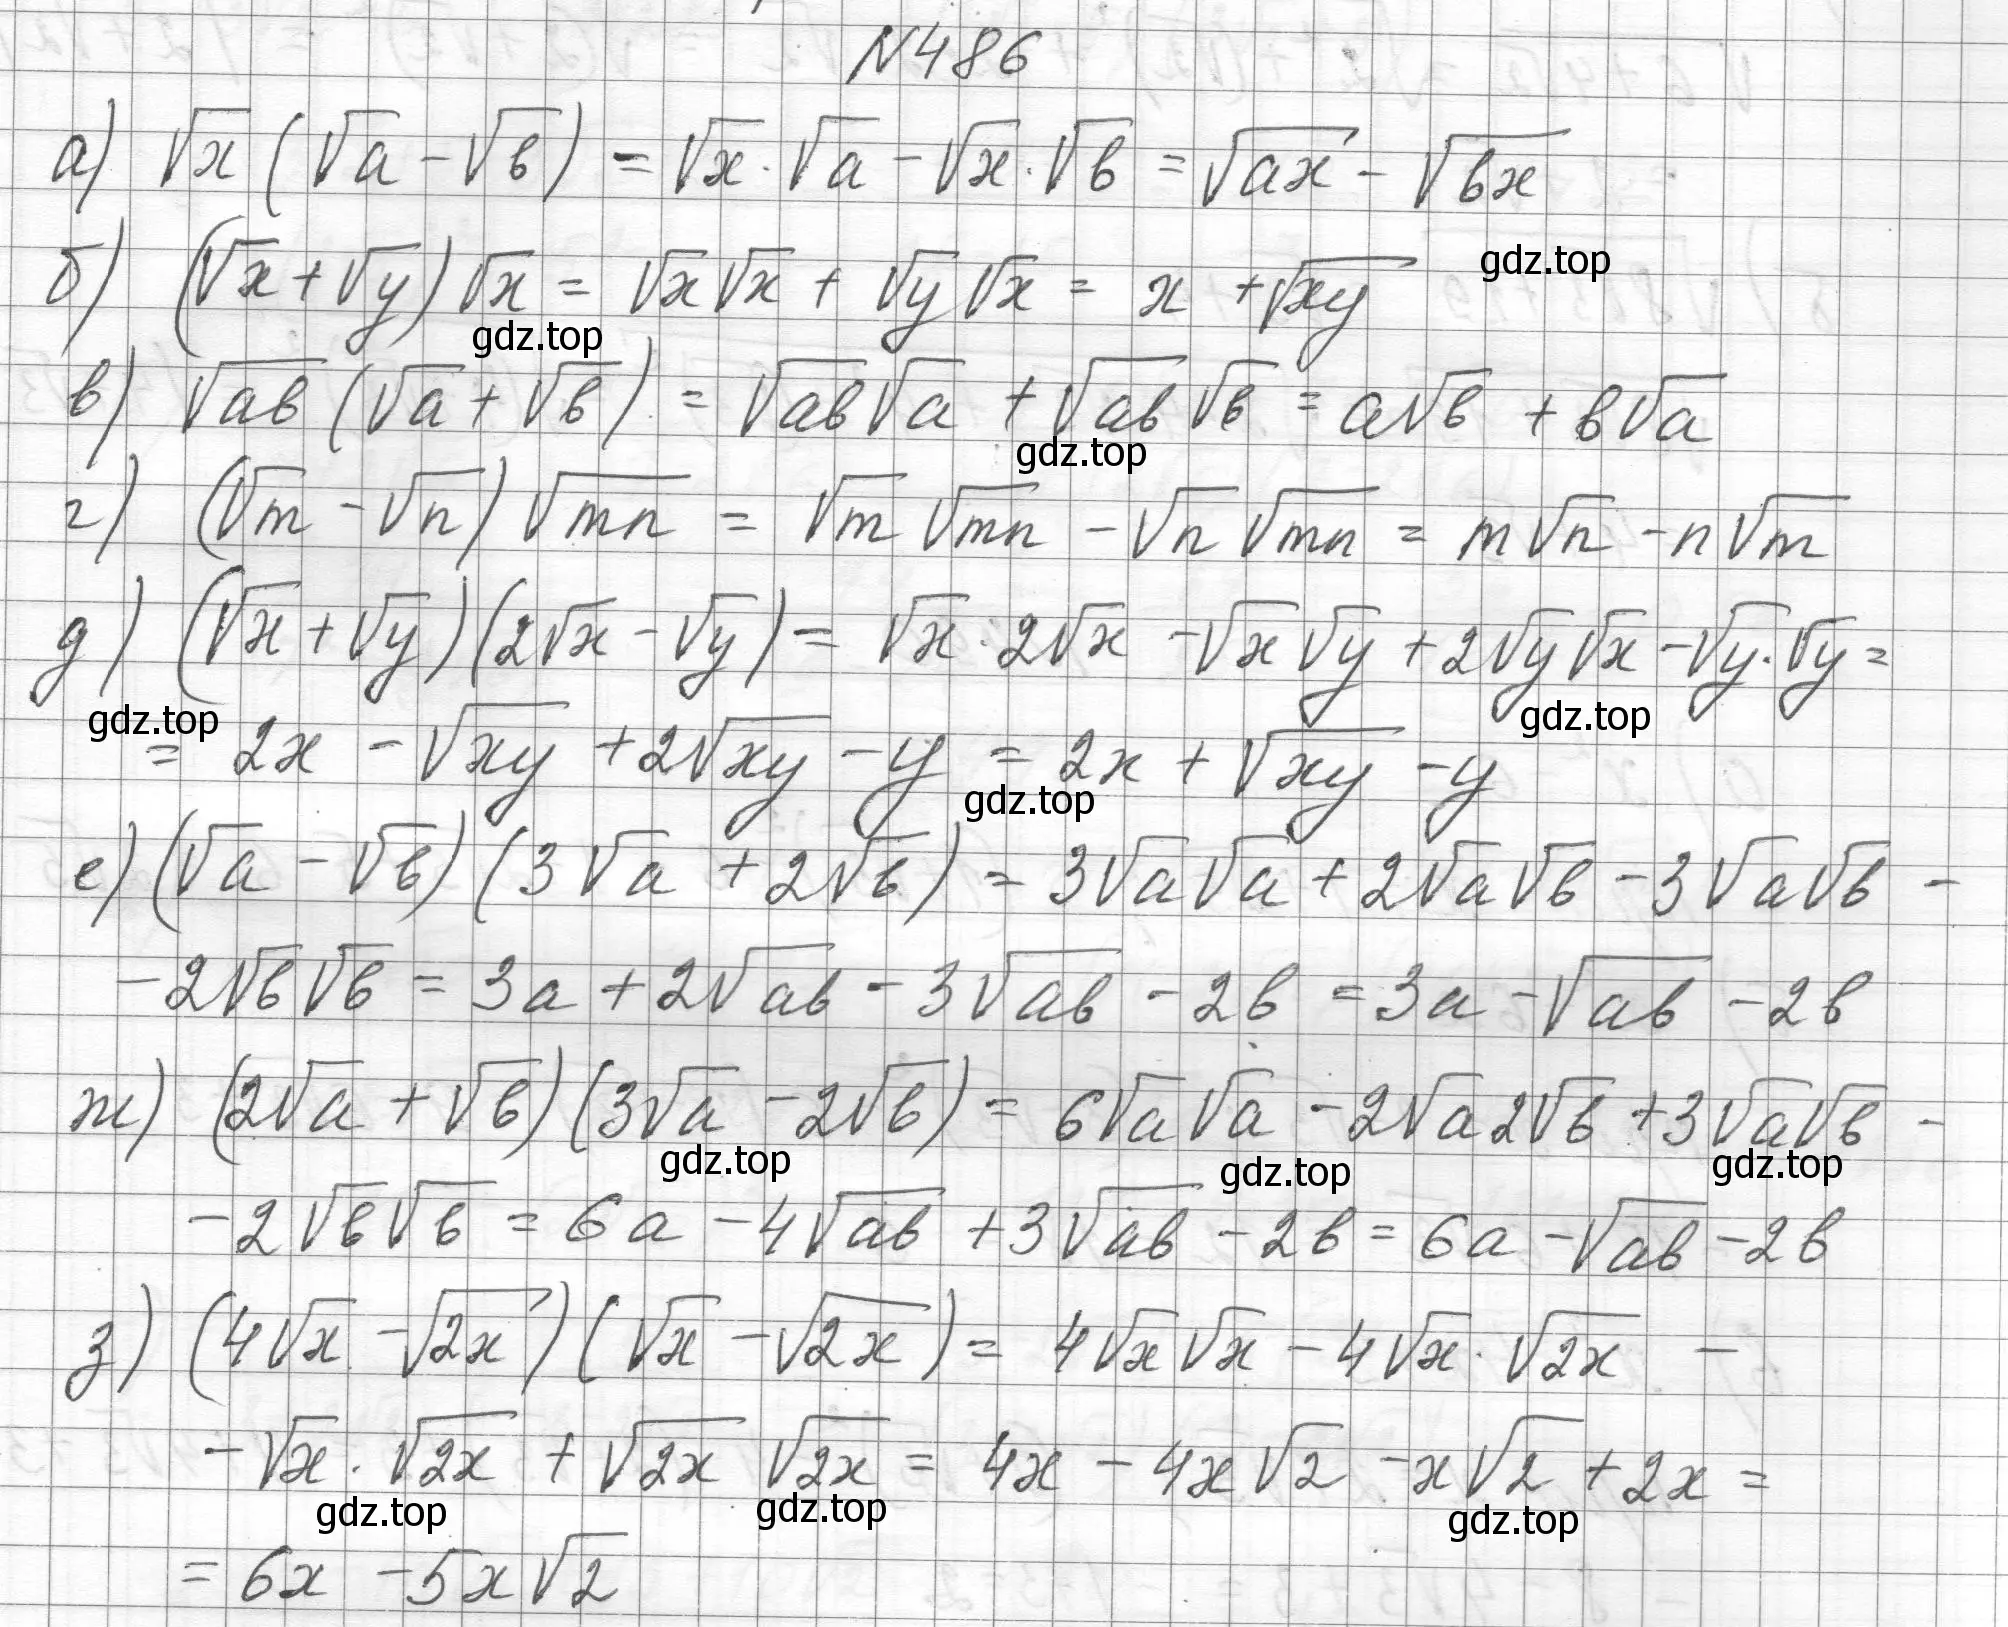 №486
а) √x (√a − √b) = √x · √a − √x · √b = √ax − √bx
б) (√x + √y) √x = √x √x + √y √x = x + √xy
gdz.top
gdz.top
в) √ab (√a + √b) = √ab √a + √ab √b = a√b + b√a
gdz.top
г) (√m − √n) √mn = √m √mn − √n √mn = m√n − n√m
д) (√x + √y)(2√x − √y) = √x · 2√x − √x √y + 2√y √x − √y · √y =
gdz.top gdz.top
= 2x − √xy + 2√xy − y = 2x + √xy − y
gdz.top
е) (√a − √b)(3√a + 2√b) = 3√a√a + 2√a√b − 3√a√b −
− 2√b√b = 3a + 2√ab − 3√ab − 2b = 3a − √ab − 2b
ж) (2√a + √b)(3√a − 2√b) = 6√a√a − 2√a 2√b + 3√a√b −
gdz.top gdz.top gdz.top
− 2√b√b = 6a − 4√ab + 3√ab − 2b = 6a − √ab − 2b
з) (4√x − √2x)(√x − √2x) = 4√x√x − 4√x · √2x −
− √x · √2x + √2x √2x = 4x − 4x√2 − x√2 + 2x =
gdz.top gdz.top gdz.top
= 6x − 5x√2